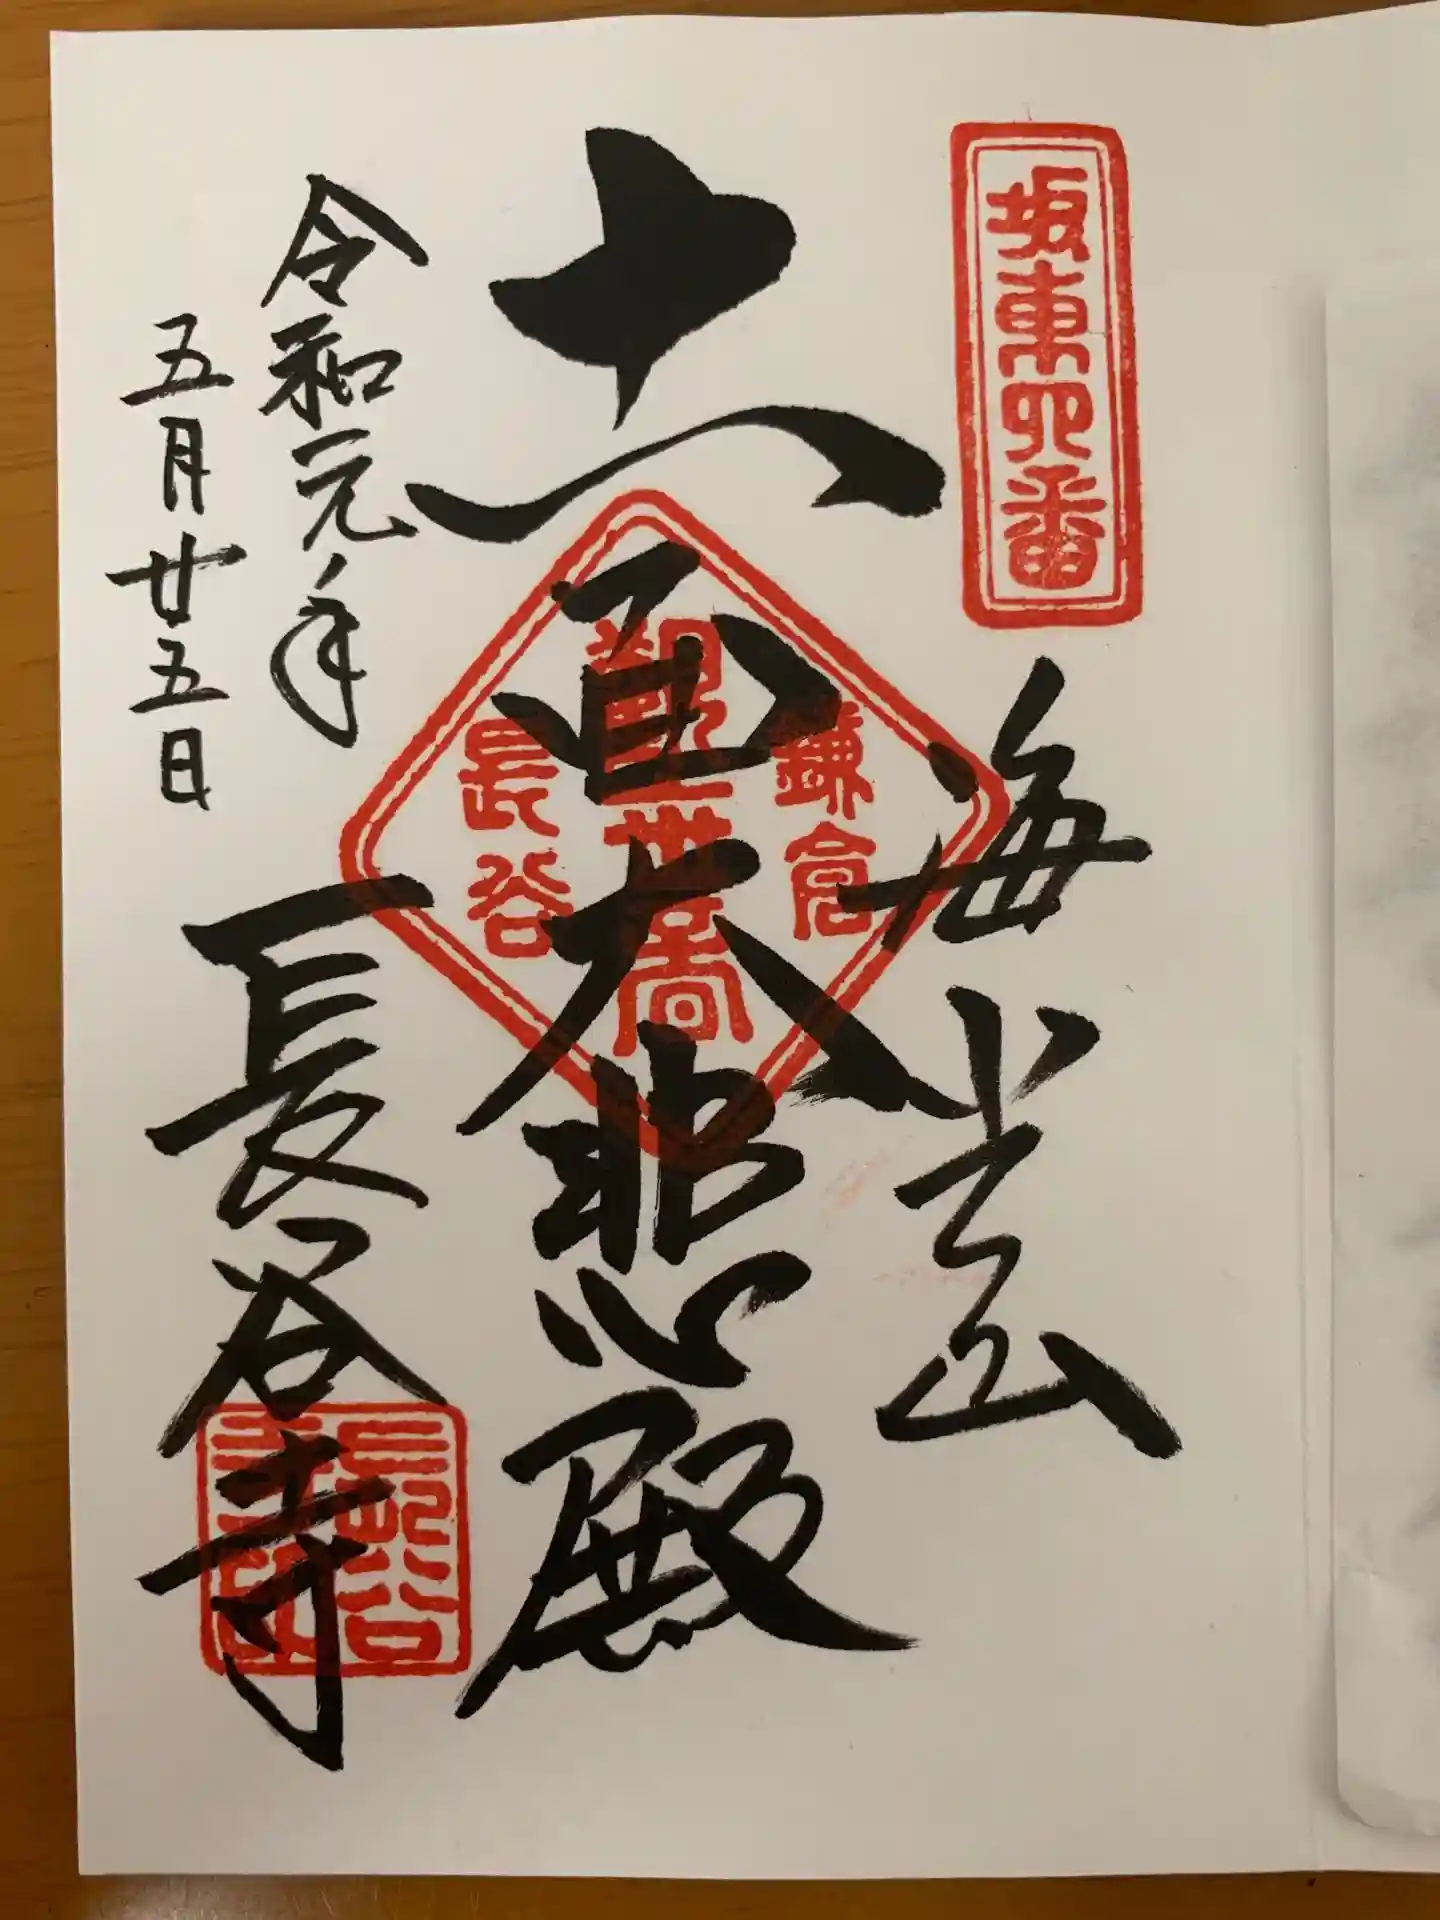 坂東四番
海光山
十一面大悲殿
鎌倉
觀世音
長谷
令和元年
五月廿五日
長谷寺